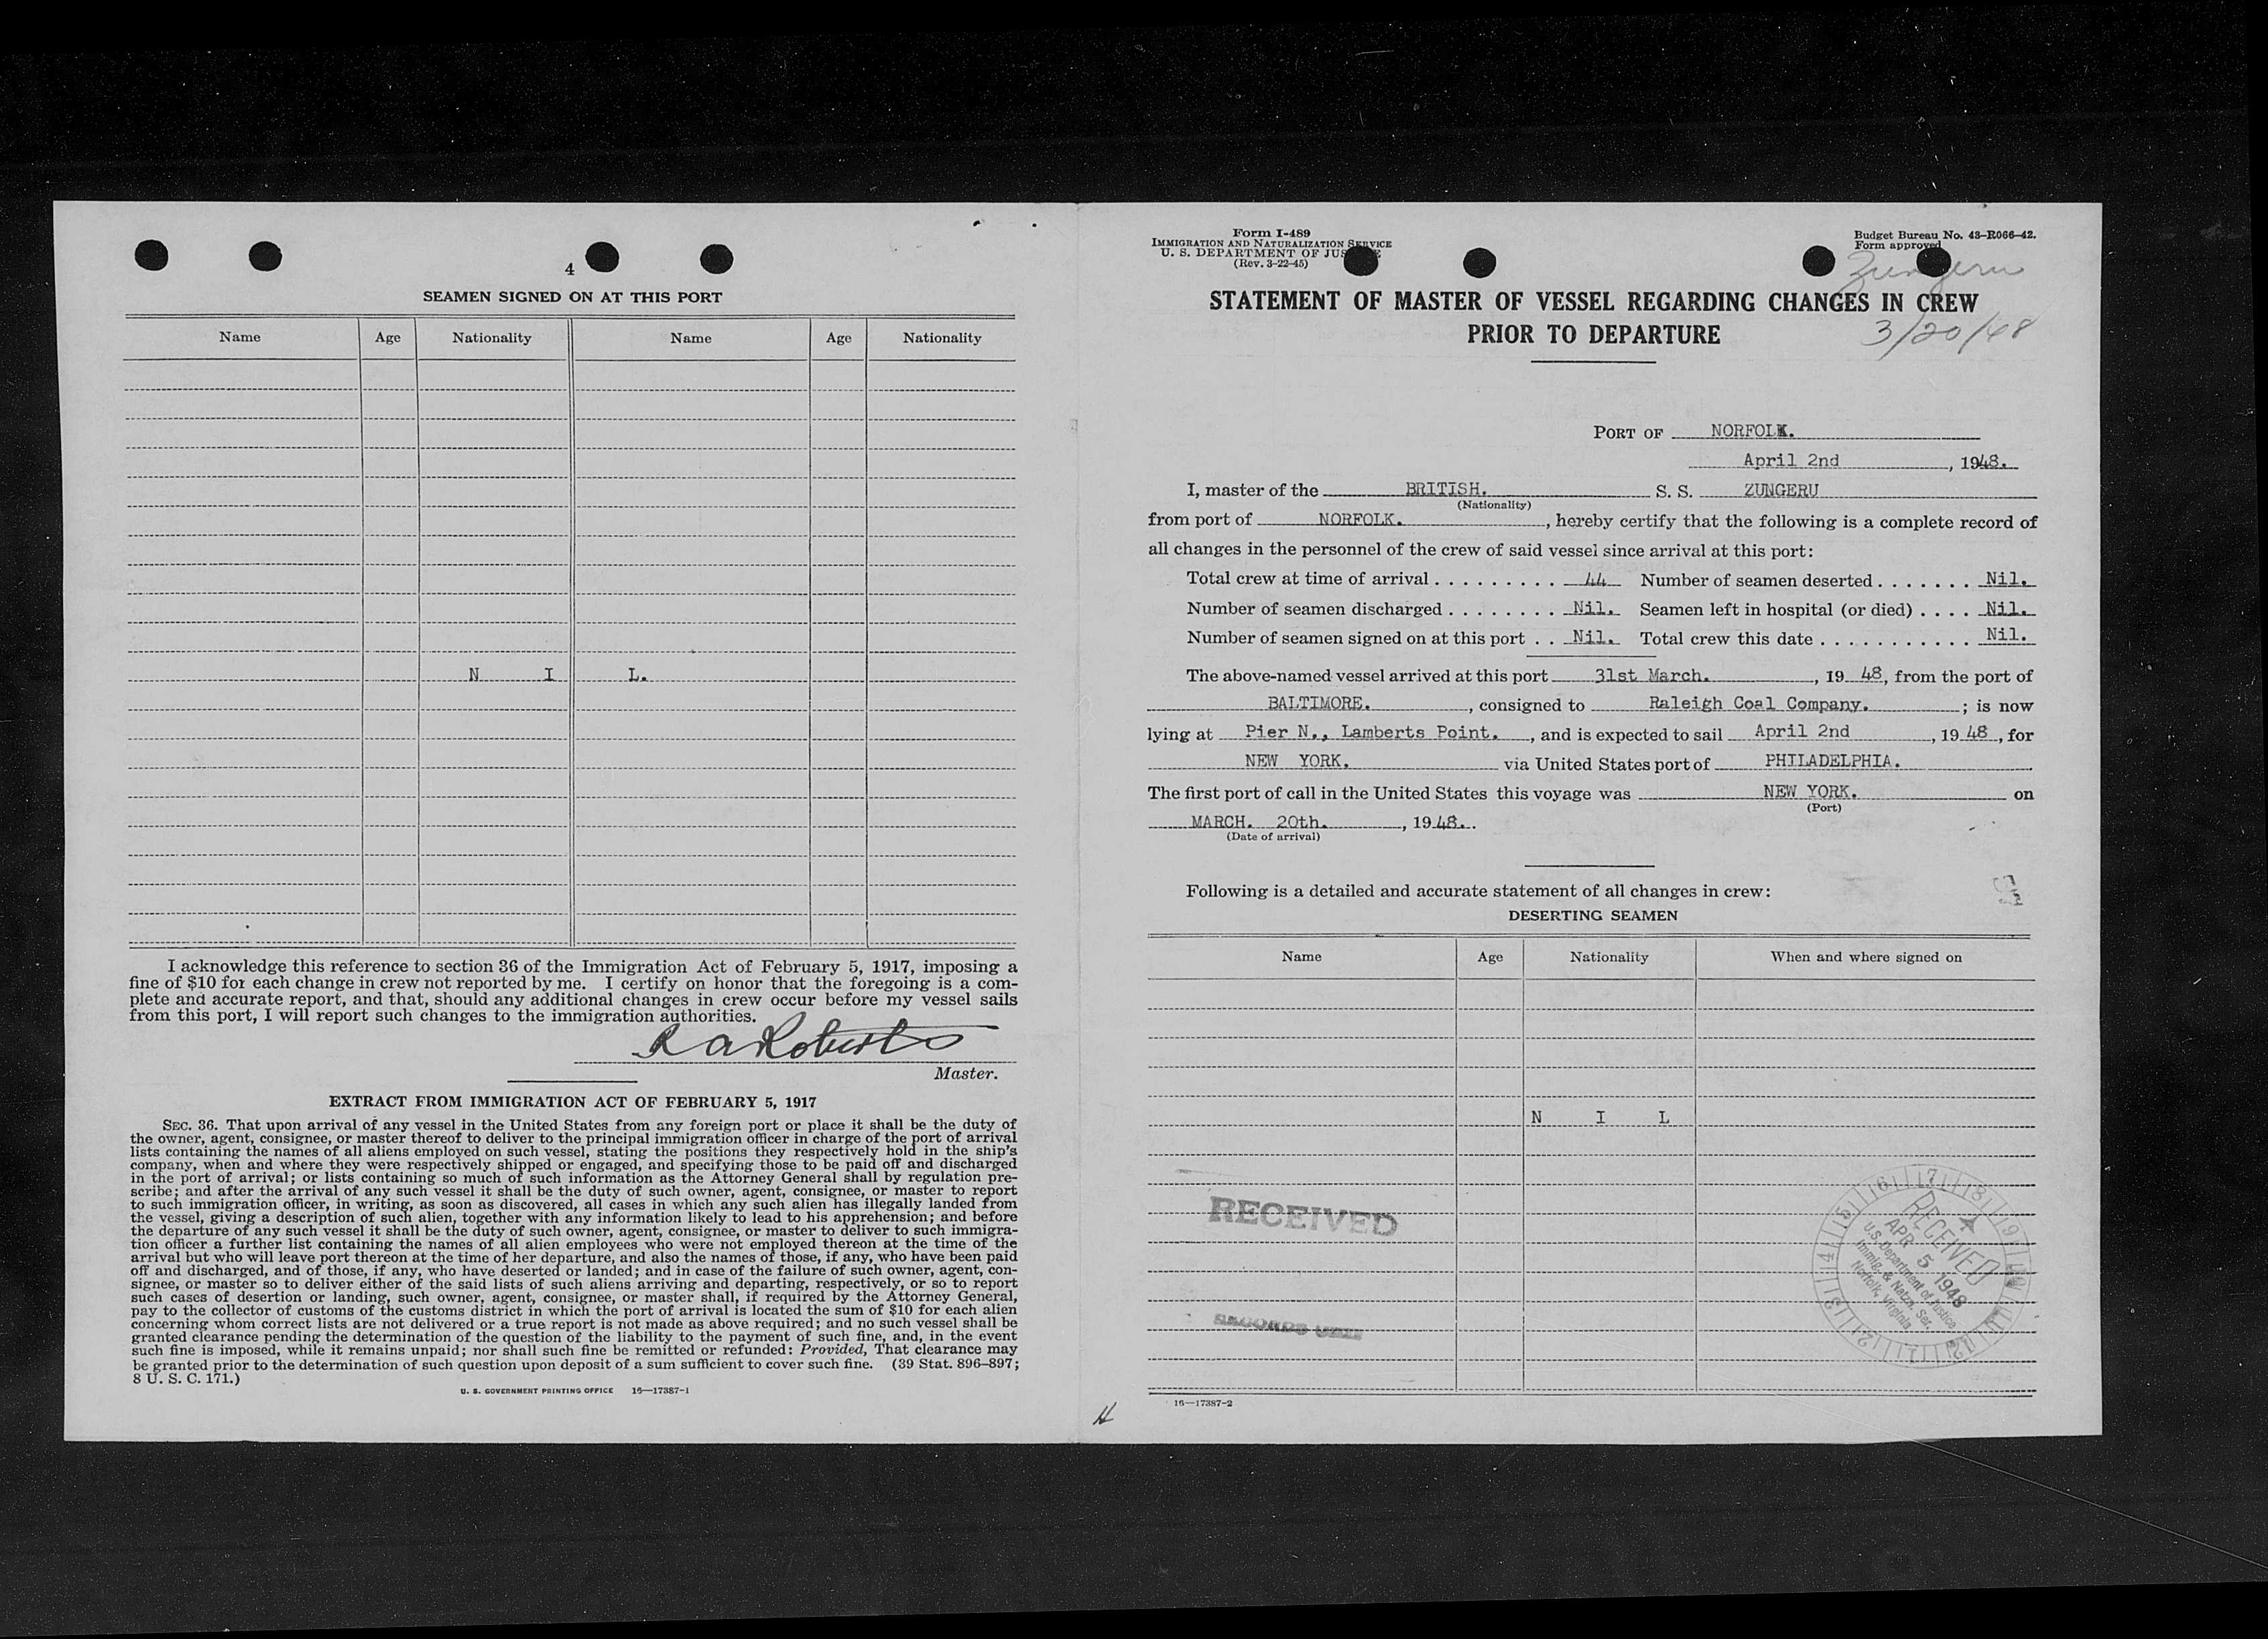 4
SEAMEN SIGNED ON AT THIS PORT
Name Age Nationality Name Age Nationality
N I L.
I acknowledge this reference to section 36 of the Immigration Act of February 5, 1917, imposing a
fine of $10 for each change in crew not reported by me. I certify on honor that the foregoing is a com-
plete and accurate report, and that, should any additional changes in crew occur before my vessel sails
from this port, I will report such changes to the immigration authorities.
R A Roberts
Master.
EXTRACT FROM IMMIGRATION ACT OF FEBRUARY 5, 1917
SEC. 36. That upon arrival of any vessel in the United States from any foreign port or place it shall be the duty of
the owner, agent, consignee, or master thereof to deliver to the principal immigration officer in charge of the port of arrival
lists containing the names of all aliens employed on such vessel, stating the positions they respectively hold in the ship's
company, when and where they were respectively shipped or engaged, and specifying those to be paid off and discharged
in the port of arrival; or lists containing so much of such information as the Attorney General shall by regulation pre-
scribe; and after the arrival of any such vessel it shall be the duty of such owner, agent, consignee, or master to report
to such immigration officer, in writing, as soon as discovered, all cases in which any such alien has illegally landed from
the vessel, giving a description of such alien, together with any information likely to lead to his apprehension; and before
the departure of any such vessel it shall be the duty of such owner, agent, consignee, or master to deliver to such immigra-
tion officer a further list containing the names of all alien employees who were not employed thereon at the time of the
arrival but who will leave port thereon at the time of her departure, and also the names of those, if any, who have been paid
off and discharged, and of those, if any, who have deserted or landed; and in case of the failure of such owner, agent, con-
signee, or master so to deliver either of the said lists of such aliens arriving and departing, respectively, or so to report
such cases of desertion or landing, such owner, agent, consignee, or master shall, if required by the Attorney General,
pay to the collector of customs of the customs district in which the port of arrival is located the sum of $10 for each alien
concerning whom correct lists are not delivered or a true report is not made as above required; and no such vessel shall be
granted clearance pending the determination of the question of the liability to the payment of such fine, and, in the event
such fine is imposed, while it remains unpaid; nor shall such fine be remitted or refunded: Provided, That clearance may
be granted prior to the determination of such question upon deposit of a sum sufficient to cover such fine. (39 Stat. 896–897;
8 U. S. C. 171.)
U. S. GOVERNMENT PRINTING OFFICE 16—17387-1
Form I-489
IMMIGRATION AND NATURALIZATION SERVICE
U. S. DEPARTMENT OF JUSTICE
(Rev. 3-22-45)
Budget Bureau No. 43-R066-42.
Form approved
Zungeru
STATEMENT OF MASTER OF VESSEL REGARDING CHANGES IN CREW
PRIOR TO DEPARTURE
3/20/48
PORT OF NORFOLK.
April 2nd, 1948.
I, master of the BRITISH. S. S. ZUNGERU
(Nationality)
from port of NORFOLK., hereby certify that the following is a complete record of
all changes in the personnel of the crew of said vessel since arrival at this port:
Total crew at time of arrival . . . . . . . . . . 44 Number of seamen deserted . . . . . . . Nil.
Number of seamen discharged . . . . . . . . Nil. Seamen left in hospital (or died) . . . . Nil.
Number of seamen signed on at this port . . Nil. Total crew this date . . . . . . . . . . . . Nil.
The above-named vessel arrived at this port 31st March., 19 48, from the port of
BALTIMORE., consigned to Raleigh Coal Company.; is now
lying at Pier N., Lamberts Point., and is expected to sail April 2nd, 19 48, for
NEW YORK. via United States port of PHILADELPHIA.
The first port of call in the United States this voyage was NEW YORK. on
(Port)
MARCH. 20th., 19 48.
(Date of arrival)
Following is a detailed and accurate statement of all changes in crew:
DESERTING SEAMEN
Name Age Nationality When and where signed on
N I L
RECEIVED
RECORDS UNIT
RECEIVED
APR 5 1948
U.S. Department of Justice
Immig. & Natzn. Ser.
Norfolk, Virginia
16—17387-2